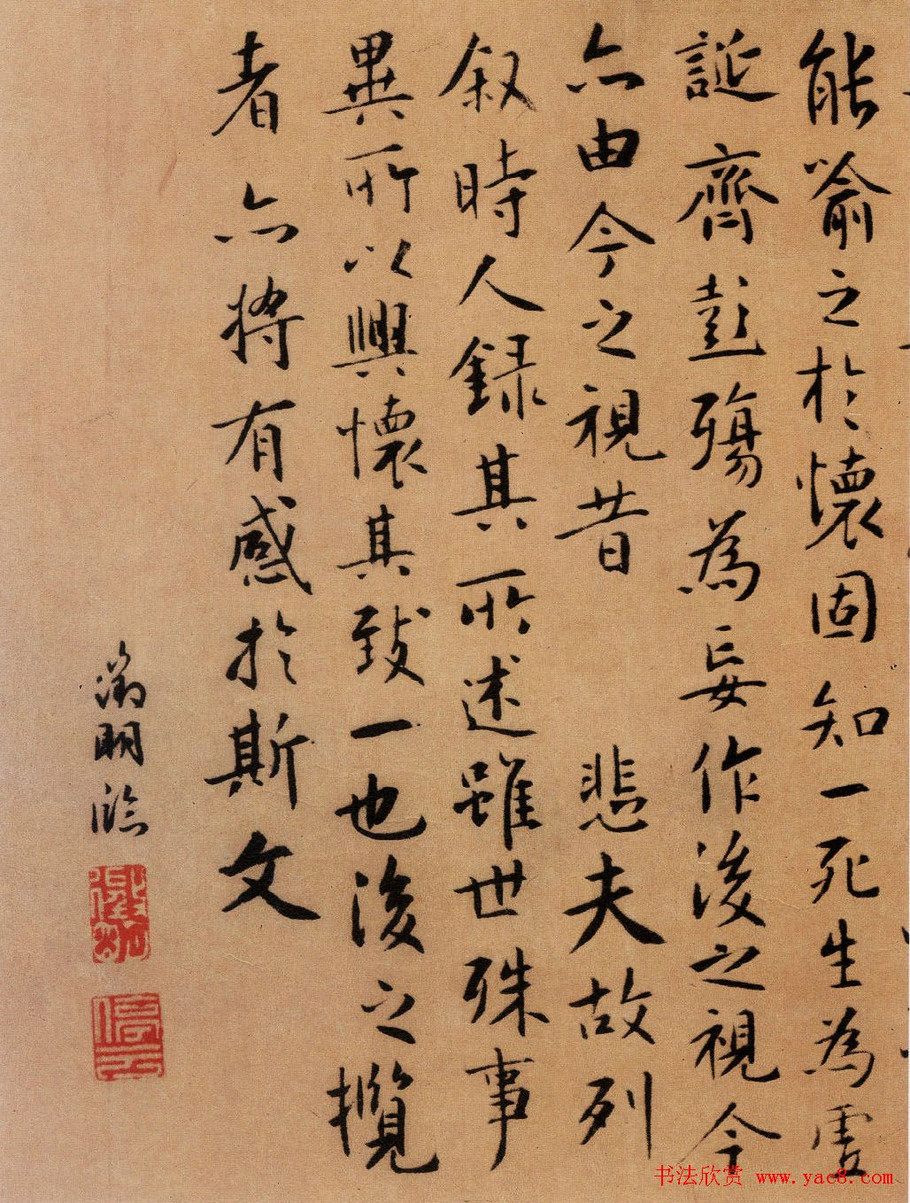 能喻之於懷固知一死生為虛
誕齊彭殤為妄作後之視今
亦由今之視昔 悲夫故列
叙時人錄其所述雖世殊事
異所以興懷其致一也後之攬
者亦將有感於斯文
徵明臨
徵明
停雲
书法欣赏 www.yac8.com